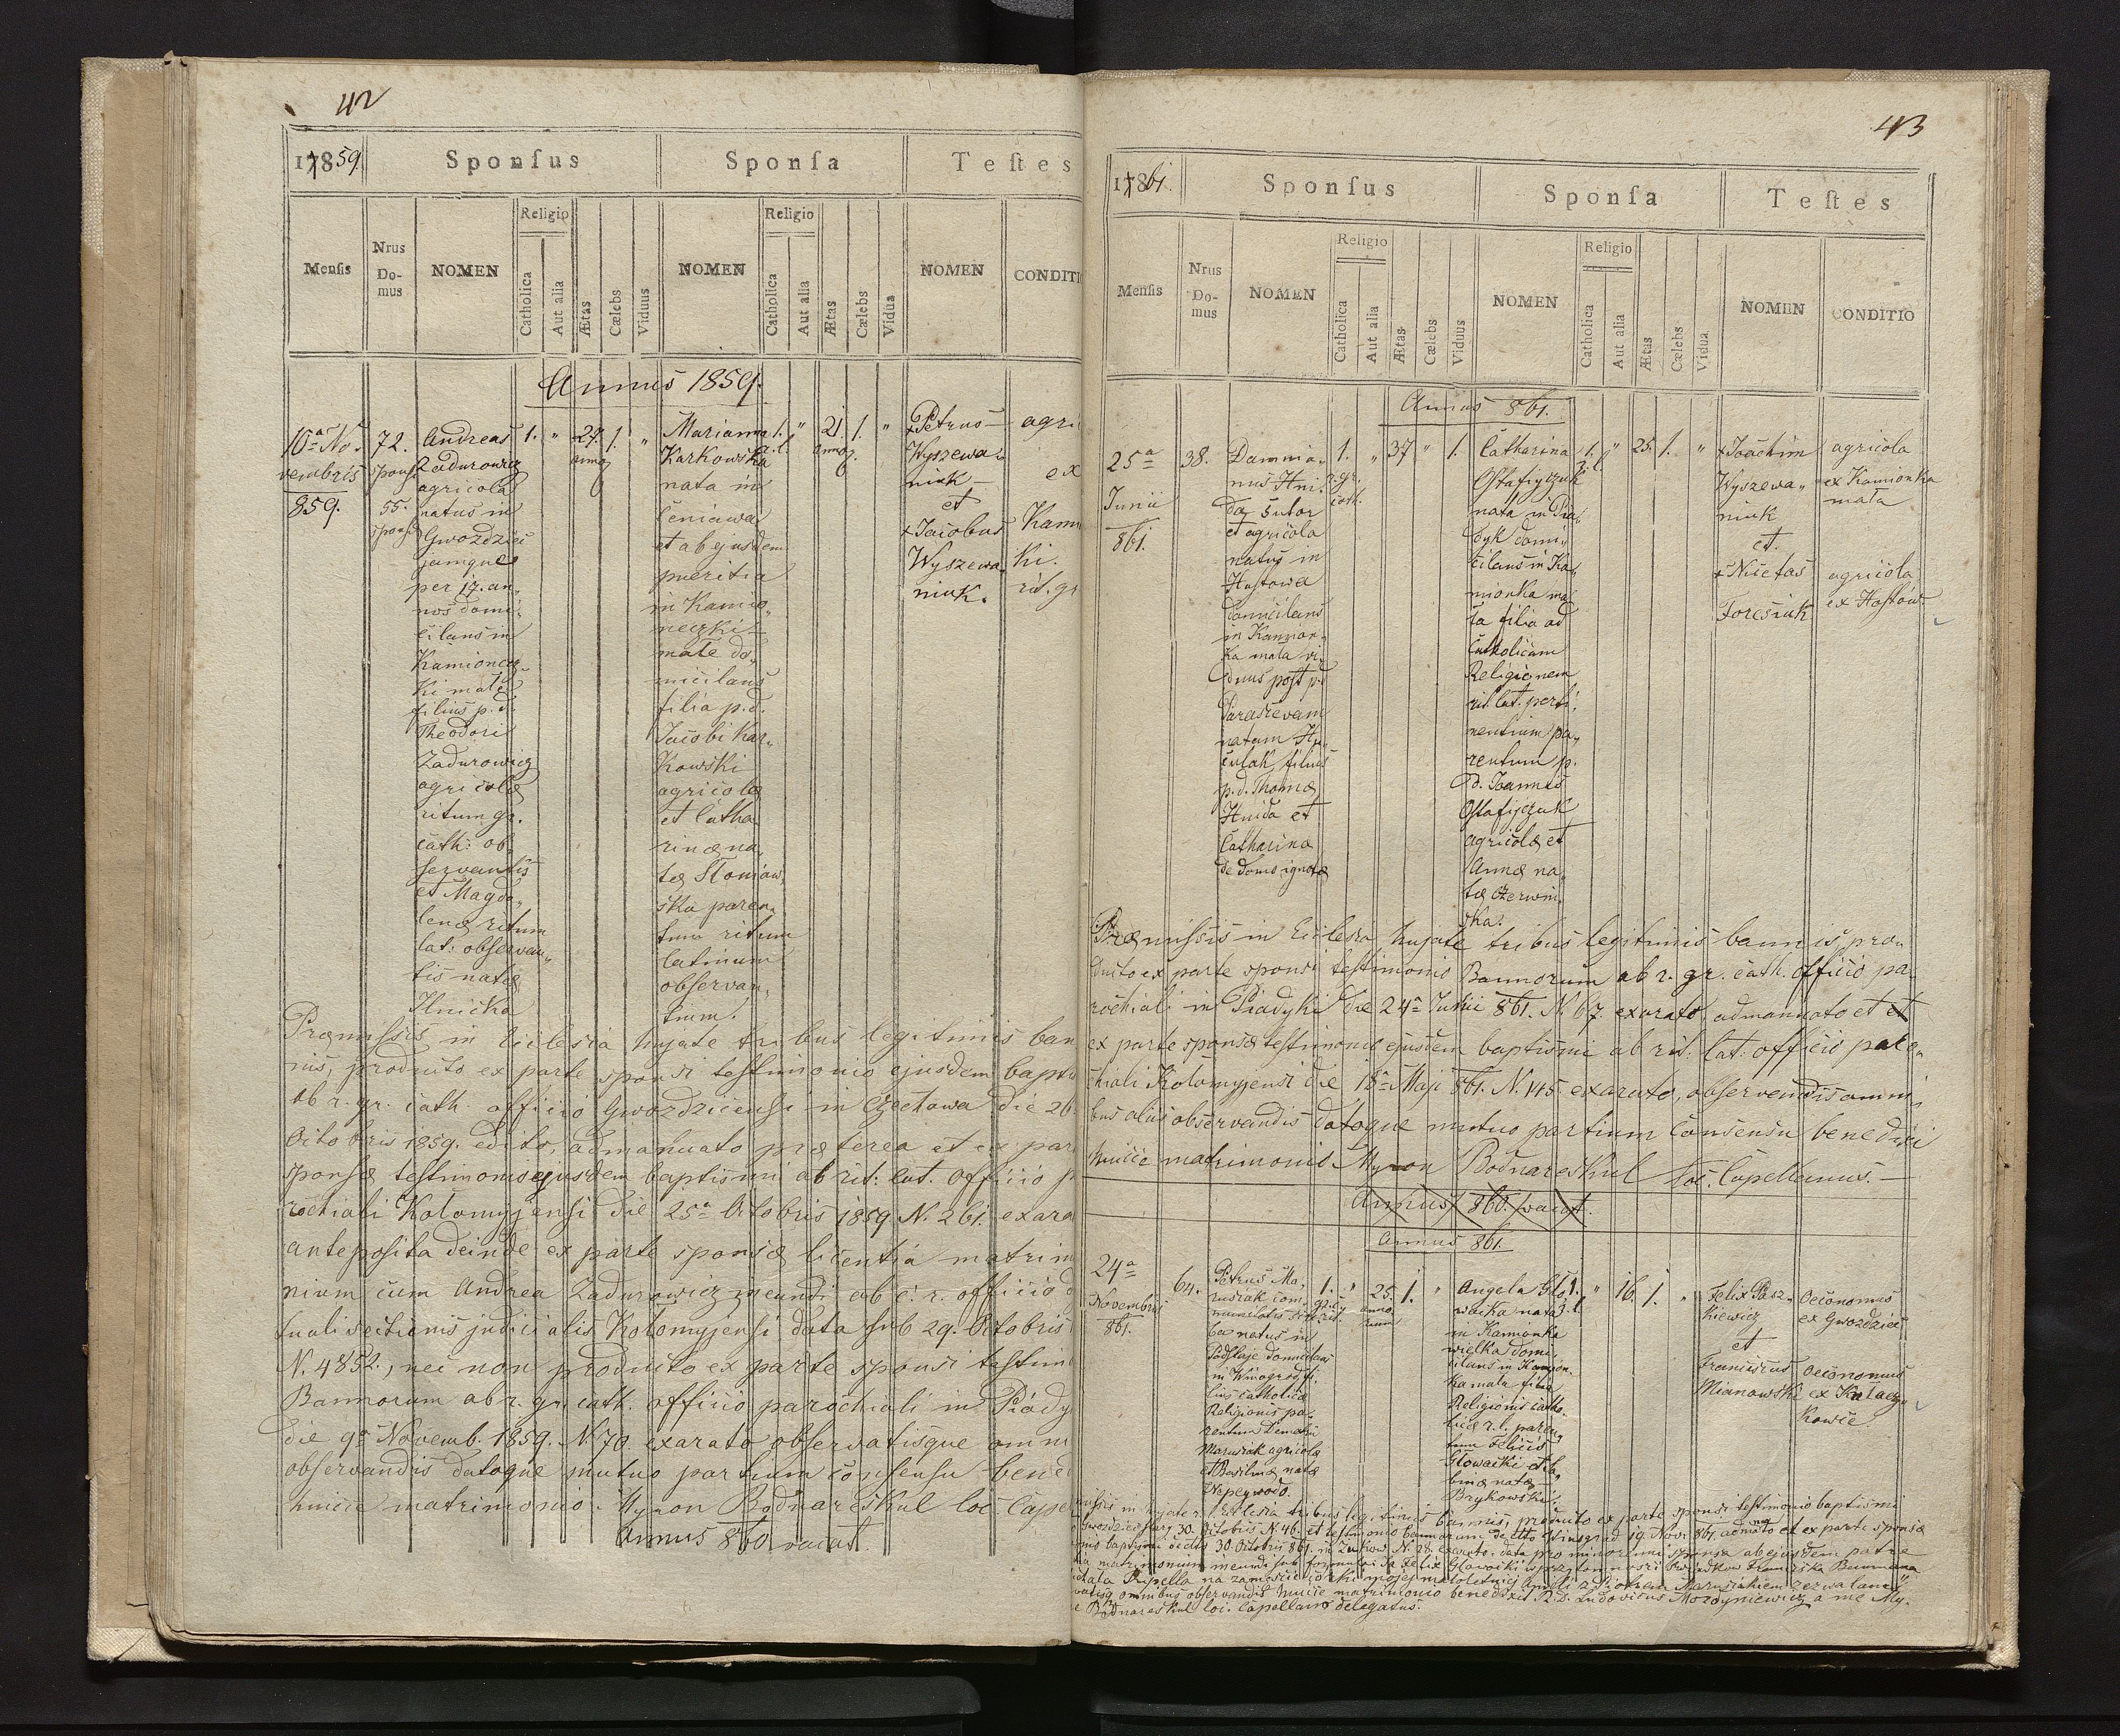 42
1859.
Sponſus
Sponſa
Teſtes
Menſis
Nrus Domus
NOMEN
Religio
Catholica
Aut alia
Ætas
Cælebs
Viduus
NOMEN
Religio
Catholica
Aut alia
Ætas
Cælebs
Vidua
NOMEN
CONDITI
Annus 1859.
10a No-
vembris
859.
72.
sponsi
55.
sponsæ
Andreas
Zadurowicz
agricola
natus in
Gwozdziec
jamque
per 17. an,,
nos domi,,
cilans in
Kamioncz,,
ki małe
filius p. d.
Theodori
Zadurowicz
agricolæ
ritum gr.
cath: ob,,
servantis
et Magda,,
lenæ ritum
lat: observan,,
tis natæ
Ilnicka
1. " 27. 1. "
Marianna
Karkowska
nata in
Ceniawa
et ab ejusdem
pueritia
in Kamio,,
neczki
małe do,,
micilans
filia p. d.
Jacobi Kar,,
kowski
agricolæ
et Catha
rinæ na,,
tæ Słoniow,,
ska paren,,
tum ritum
latinum
observan,,
tium.
1. " 21. 1. "
+ Petrus
Wyszewa,,
niuk
et
+ Jacobus
Wyszewa,,
niuk.
agri
ex
Kami
ki.
rit. gr
Præmissis in Ecclesia hujate tribus legitimis ban
nis, producto ex parte sponsi testimonio ejusdem bapti
ab r. gr. cath. officio Gwozdziecensi in die 26
Octobris 1859. edito, admanuato præterea et ex par
sponsæ testimonio ejusdem baptismi ab rit: lat. officio p
rochiali Kolomyjensi die 25a Octobris 1859 N. 261. exara
anteposita deinde ex parte sponsæ licentia matrim
nium cum Andrea Zadurowicz ineundi ab c. r. officio d
tuali sectionis judicialis Kolomyjensi data sub 29. Octobris
N. 4852., nec non producto ex parte sponsi testim
Bannorum ab r. gr. cath. officio parochiali in Piady
die 9a Novemb. 1859. N. 70. exarato observatisque omni
observandis datoque mutuo partium consensu bened
huicce matrimonio. Myron Bodnareskul loc. Cape
Annus 860 vacat.
43
1861.
Sponſus
Sponſa
Teſtes
Menſis
Nrus Domus
NOMEN
Religio
Catholica
Aut alia
Ætas
Cælebs
Viduus
NOMEN
Religio
Catholica
Aut alia
Ætas
Cælebs
Vidua
NOMEN
CONDITIO
Annus 861.
25a
Junii
861.
38.
Damia,,
nus Hni,,
da sutor
et agricola
natus in
Hostowa
domicilans
in Kamion,,
ka mała vi,,
duus post p. d
Parascevam
natam Hu,,
culak filius
p. d. Thomæ
Hnida et
Catharinæ
de domo ignotæ
1. r. gr. cath. " 37 " 1.
Catharina
Ostafijczuk
nata in Pia,,
dyk domi,,
cilans in Ka,,
mionka ma,,
ła filia ad
Catholicam
Religionem
rit. lat. perti,,
nentium pa,,
rentum p.
d. Joannis
Ostafijczuk
agricolæ et
Annæ na,,
tæ Czerwin,,
ska.
1. r. l. " 25. 1. "
+ Joachim
Wyszewa,,
niuk
et.
+ Nicetas
Foresiuk
agricola
ex Kamionka
mała
agricola
ex Hostow.
Præmissis in Ecclesia hujate tribus legitimis bannis, pro,,
ducto ex parte sponsi testimonio Bannorum ab r. gr. cath. officio pa,,
rochiali in Piadyki die 24a Junii 861. N. 67. exarato, admanuato et et
ex parte sponsæ testimonio ejusdem baptismi ab rit: lat: officio paro,,
chiali Kolomyjensi die 18a Maji 861. N. 145. exarato, observandis omni,,
bus aliis observandis datoque mutuo partium consensu benedixi
huicce matrimonio Myron Bodnareskul loc. Capellanus.
Annus 860. vacat.
Annus 861.
24a
Novembris
861.
64.
Petrus Ma,,
rusiak com,,
natus in
domicilans
in Winograd fi,,
lius catholicæ
Religionis pa,,
rentum Demetri
Marusiak agricolæ
et Basilinæ natæ
1. " 25. 1. "
Angela Gło,,
wacka nata
in Kamionka
wielka domi,,
cilans in Kamion,,
ka mała filia
Religionis catho,,
licæ r. l. paren,,
tum Felicis
Głowacki et
natæ
Brykowski.
1. r. l. " 16. 1. "
Felix Pasz,,
kiewicz
et
Franciscus
Mianowski
Oeconomus
ex Gwozdziec
Oeconomus
ex Kułacz,,
kowce
missis in hujate r. l. Ecclesia tribus legitimis bannis, producto ex parte sponsi testimonio baptismi
30. Octobris N. 46. et testimonio bannorum de dto Winograd 19. Nov. 861. admato et ex parte sponsæ
nio baptismi de dto 30. Octobris 861. in Żukow N. 28. exarato, data pro minorenni sponsa ab ejusdem patre
matrimonium ineundi sub formula: Ja Felix Głowacki w przytomności świadkow Franciszka
na zamęście córki mojej małoletniej Anieli z Piotrem Marusiakiem zezwalam
omnibus observandis huicce matrimonio benedixit R. D. Ludovicus Mordyniewicz a me My,,
Bodnareskul loc. Capellano delegatus.